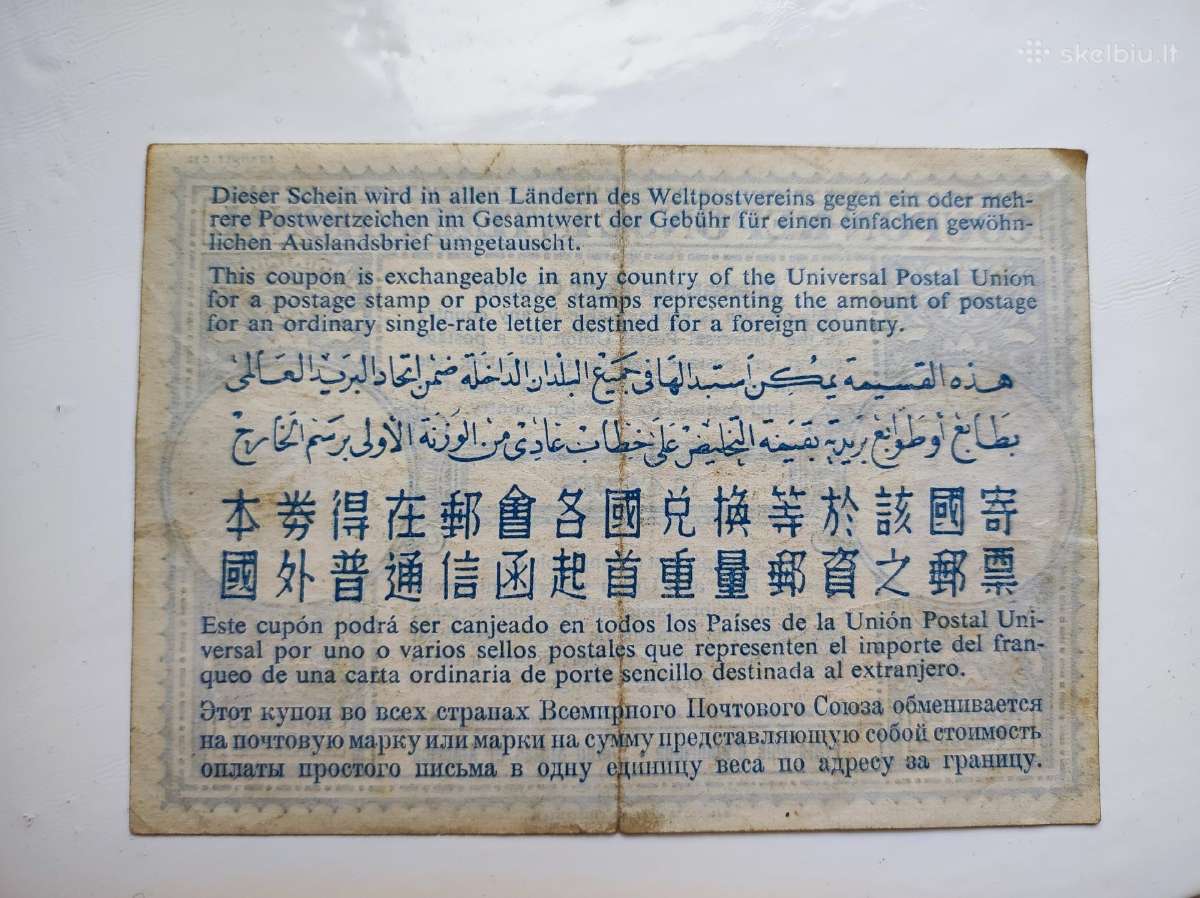 skelbiu.lt
Dieser Schein wird in allen Ländern des Weltpostvereins gegen ein oder meh-
rere Postwertzeichen im Gesamtwert der Gebühr für einen einfachen gewöhn-
lichen Auslandsbrief umgetauscht.
This coupon is exchangeable in any country of the Universal Postal Union
for a postage stamp or postage stamps representing the amount of postage
for an ordinary single-rate letter destined for a foreign country.
هذه القسيمة يمكن استبدالها في جميع البلدان الداخلة ضمن اتحاد البريد العالمى
بطابع أو طوابع بريدية بقيمة التخليص على خطاب عادى من الوزنة الأولى برسم الخارج
本券得在郵會各國兌換等於該國寄
國外普通信函起首重量郵資之郵票
Este cupón podrá ser canjeado en todos los Países de la Unión Postal Uni-
versal por uno o varios sellos postales que representen el importe del fran-
queo de una carta ordinaria de porte sencillo destinada al extranjero.
Этот купон во всех странах Всемирного Почтового Союза обменивается
на почтовую марку или марки на сумму представляющую собой стоимость
оплаты простого письма в одну единицу веса по адресу за границу.